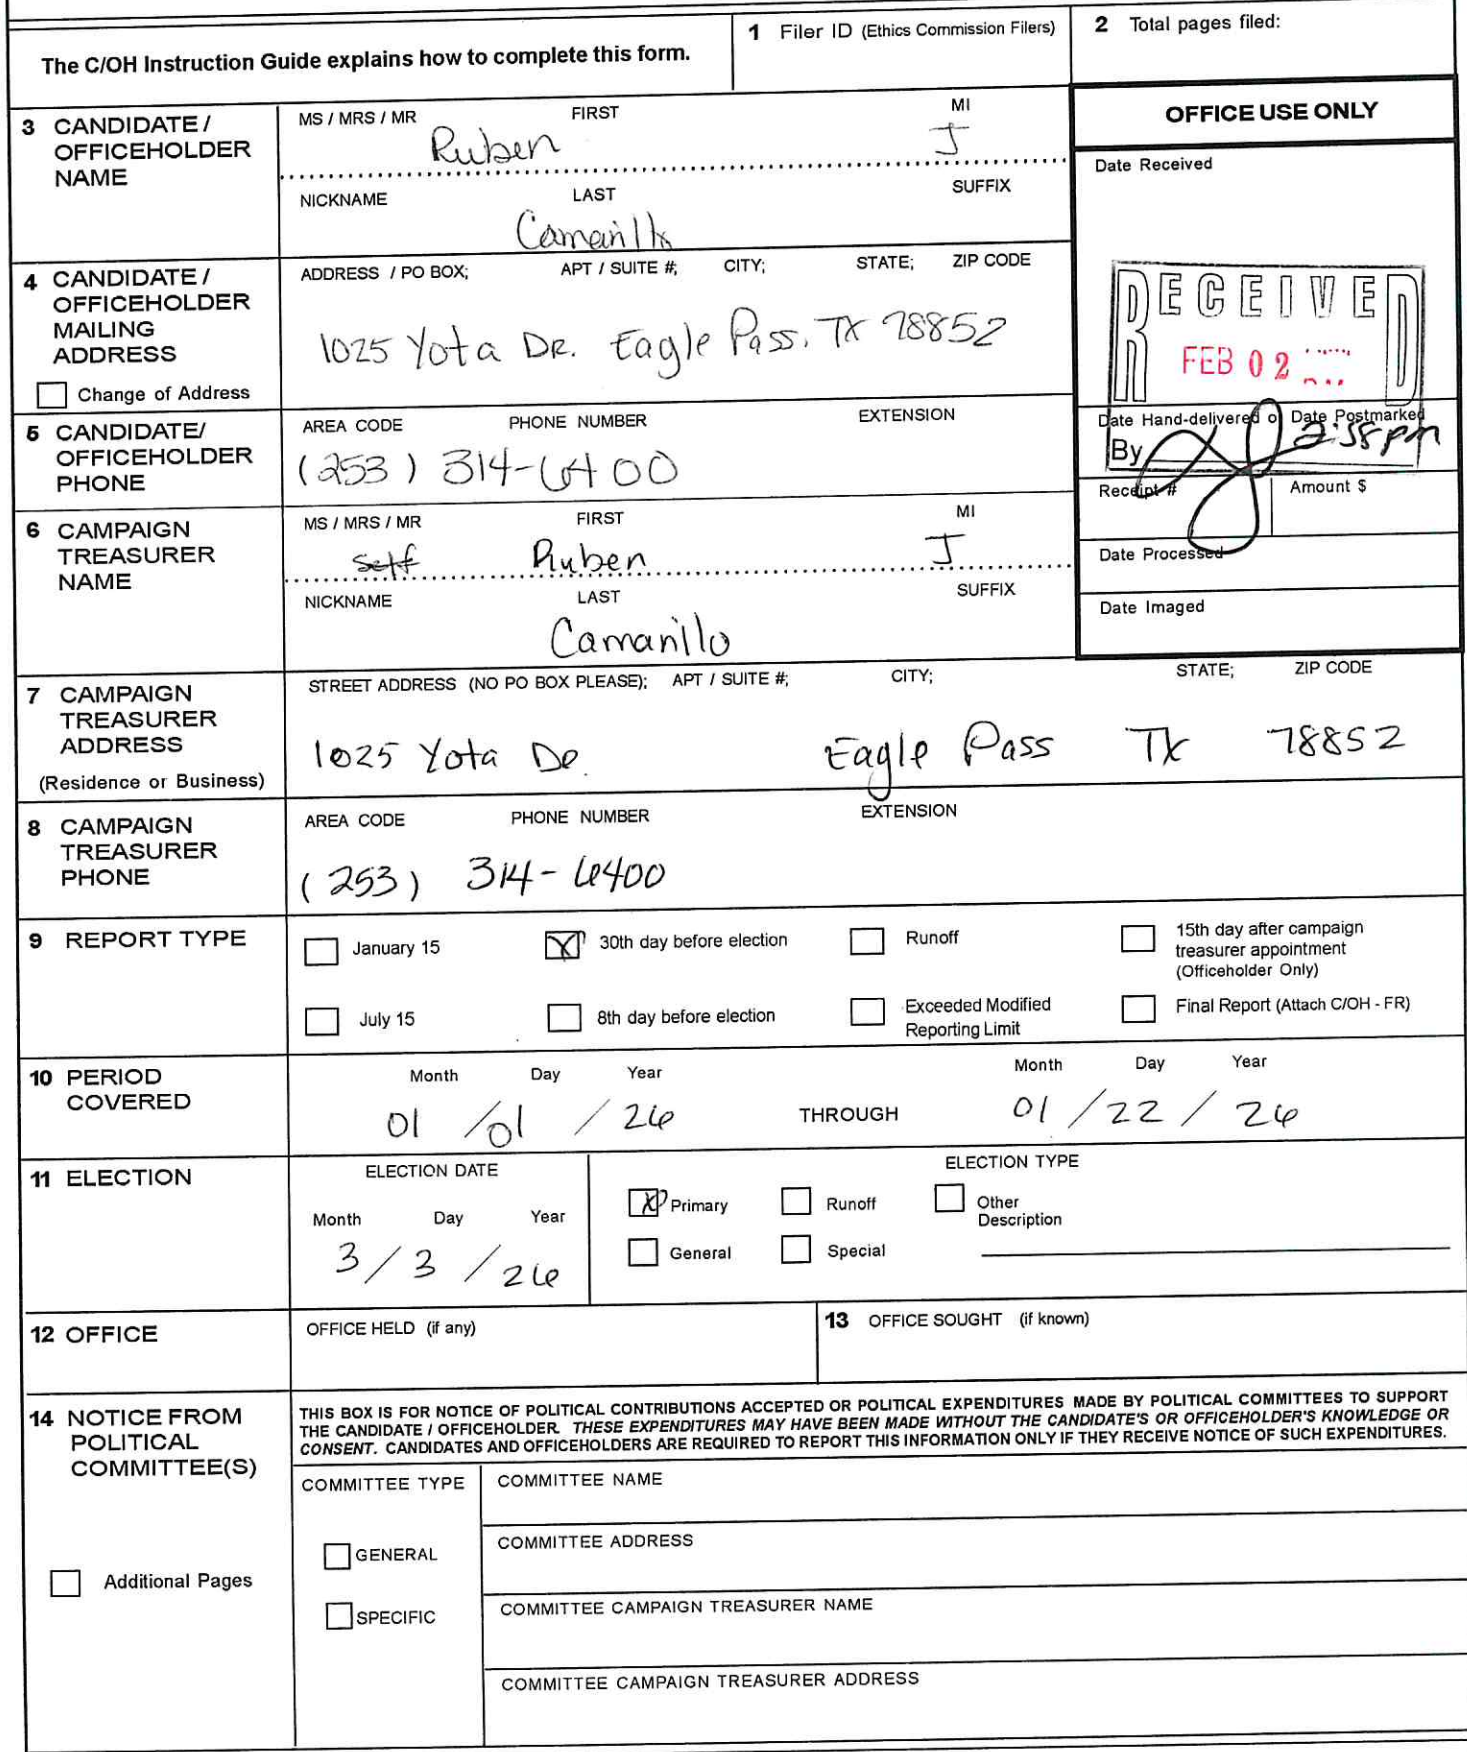 The C/OH Instruction Guide explains how to complete this form.
1 Filer ID (Ethics Commission Filers)
2 Total pages filed:
3 CANDIDATE / OFFICEHOLDER NAME
MS / MRS / MR FIRST MI
Ruben J
NICKNAME LAST SUFFIX
Camarillo
OFFICE USE ONLY
Date Received
RECEIVED
FEB 02
Date Hand-delivered or Date Postmarked
By 2:58 pm
Receipt # Amount $
Date Processed
Date Imaged
4 CANDIDATE / OFFICEHOLDER MAILING ADDRESS
Change of Address
ADDRESS / PO BOX; APT / SUITE #; CITY; STATE; ZIP CODE
1025 Yota DR. Eagle Pass, TX 78852
5 CANDIDATE/ OFFICEHOLDER PHONE
AREA CODE PHONE NUMBER EXTENSION
(253) 314-6400
6 CAMPAIGN TREASURER NAME
MS / MRS / MR FIRST MI
Self Ruben J
NICKNAME LAST SUFFIX
Camarillo
7 CAMPAIGN TREASURER ADDRESS
(Residence or Business)
STREET ADDRESS (NO PO BOX PLEASE); APT / SUITE #; CITY; STATE; ZIP CODE
1025 Yota DR. Eagle Pass TX 78852
8 CAMPAIGN TREASURER PHONE
AREA CODE PHONE NUMBER EXTENSION
(253) 314-6400
9 REPORT TYPE
January 15
X 30th day before election
Runoff
15th day after campaign treasurer appointment (Officeholder Only)
July 15
8th day before election
Exceeded Modified Reporting Limit
Final Report (Attach C/OH - FR)
10 PERIOD COVERED
Month Day Year
01 / 01 / 26
THROUGH
Month Day Year
01 / 22 / 26
11 ELECTION
ELECTION DATE
Month Day Year
3 / 3 / 26
ELECTION TYPE
X Primary
Runoff
Other Description
General
Special
12 OFFICE
OFFICE HELD (if any)
13 OFFICE SOUGHT (if known)
14 NOTICE FROM POLITICAL COMMITTEE(S)
Additional Pages
THIS BOX IS FOR NOTICE OF POLITICAL CONTRIBUTIONS ACCEPTED OR POLITICAL EXPENDITURES MADE BY POLITICAL COMMITTEES TO SUPPORT
THE CANDIDATE / OFFICEHOLDER. THESE EXPENDITURES MAY HAVE BEEN MADE WITHOUT THE CANDIDATE'S OR OFFICEHOLDER'S KNOWLEDGE OR
CONSENT. CANDIDATES AND OFFICEHOLDERS ARE REQUIRED TO REPORT THIS INFORMATION ONLY IF THEY RECEIVE NOTICE OF SUCH EXPENDITURES.
COMMITTEE TYPE
GENERAL
SPECIFIC
COMMITTEE NAME
COMMITTEE ADDRESS
COMMITTEE CAMPAIGN TREASURER NAME
COMMITTEE CAMPAIGN TREASURER ADDRESS